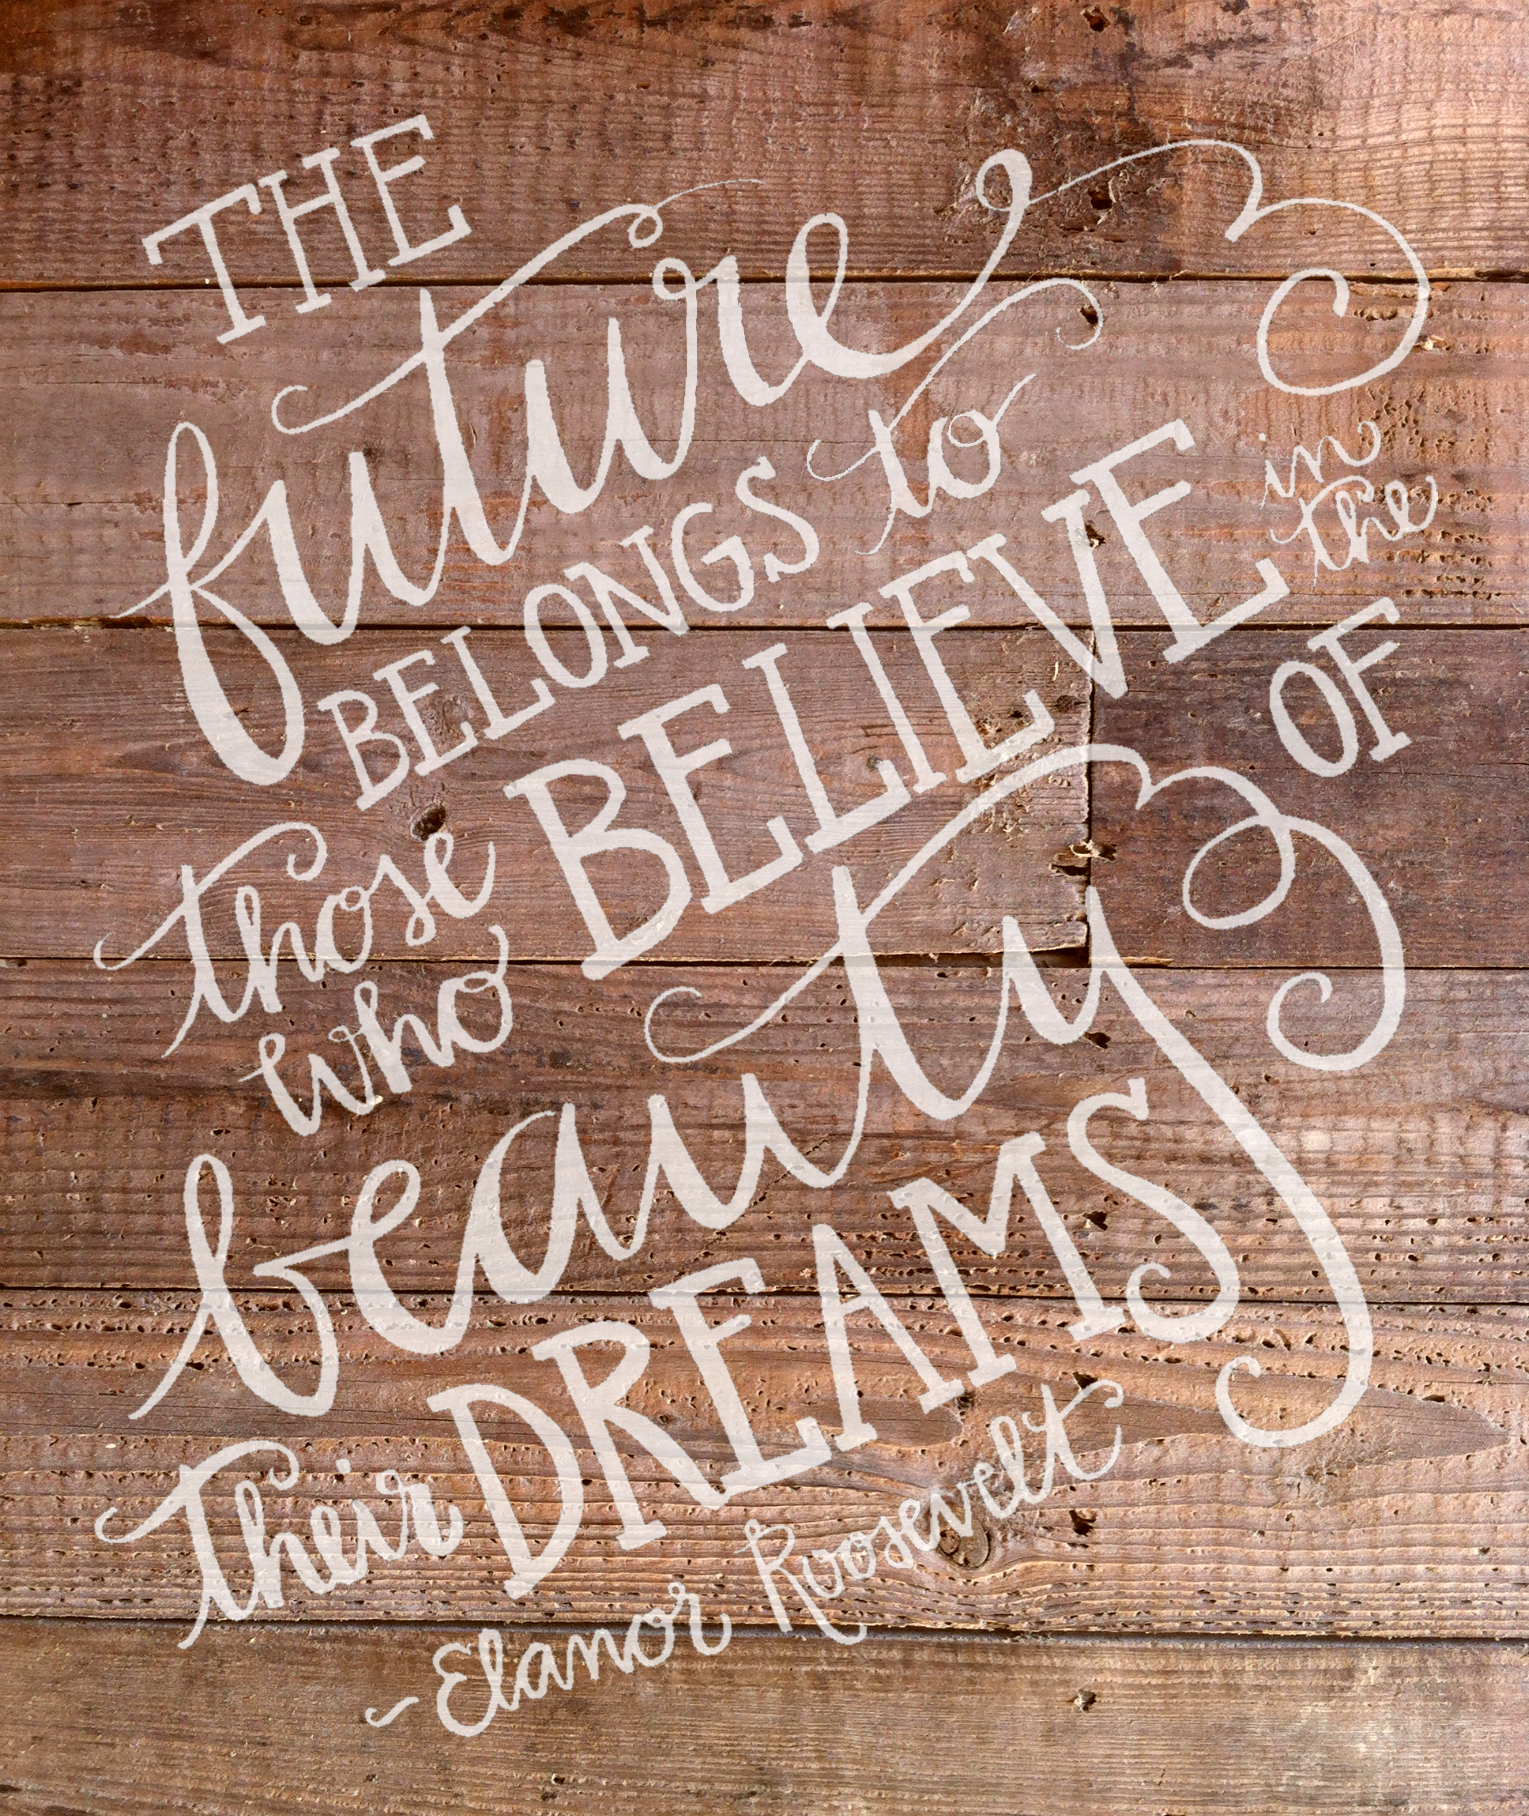 THE
future
BELONGS to
those
who
BELIEVE
in
the
beauty
OF
their DREAMS
-Elanor Roosevelt